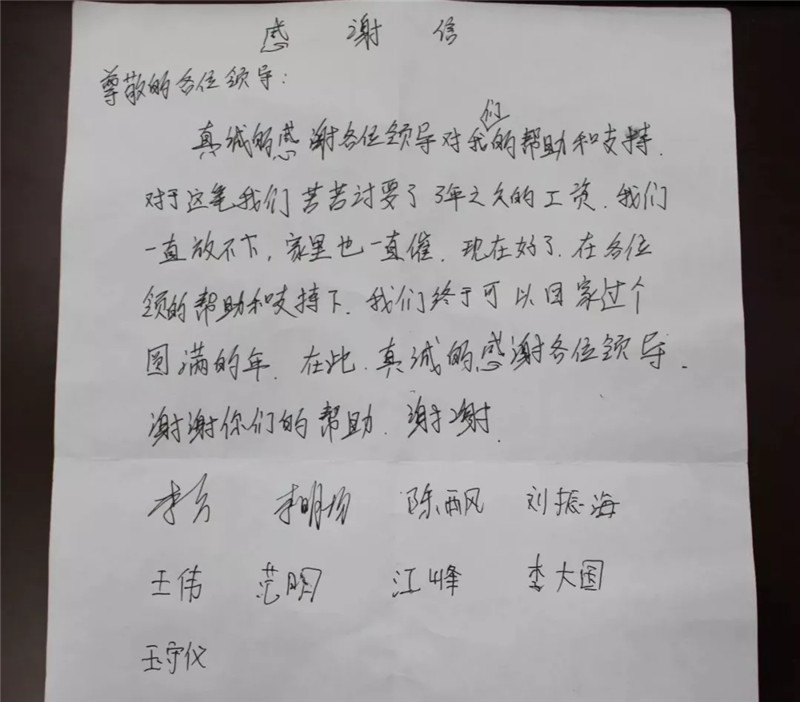 感谢信
尊敬的各位领导：
真诚的感谢各位领导对我们的帮助和支持.
对于这笔我们苦苦讨要了3年之久的工资.我们
一直放不下，家里也一直催.现在好了.在各位
领的帮助和支持下.我们终于可以回家过个
圆满的年.在此.真诚的感谢各位领导.
谢谢你们的帮助.谢谢.
李明扬 陈丽风 刘振海
王伟 范明 江峰 李大国
王守仪